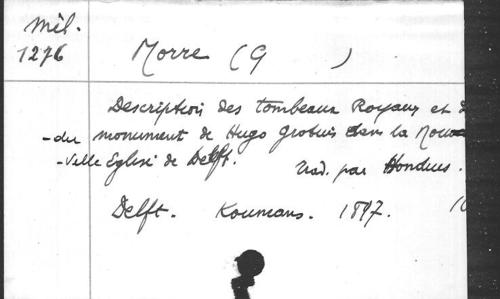 Mél.
1276
Morre (G )
Description des tombeaux Royaux et d
-du monument de Hugo Grotius dans la Nou
-velle Eglise de Delft. Trad. par Hondius.
Delft. Koumans. 1897. 10